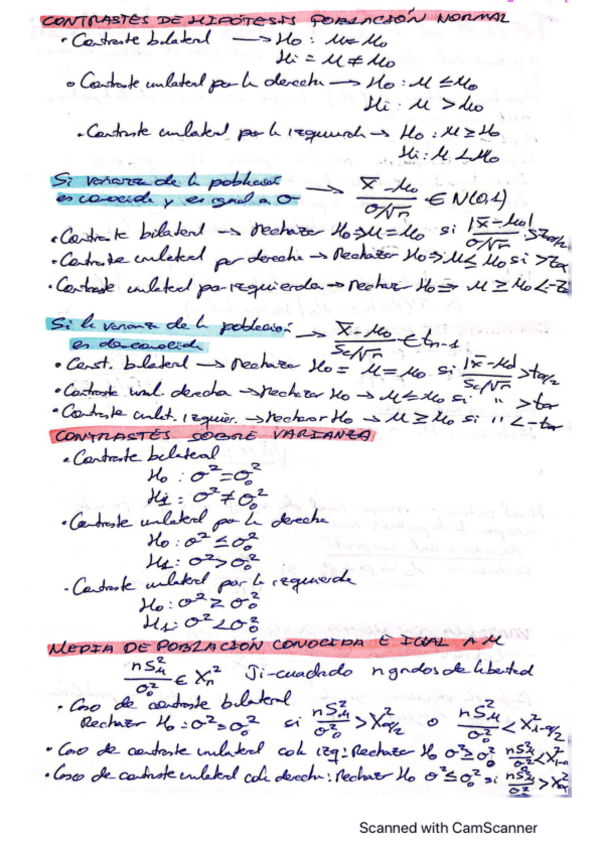 CONTRASTES DE HIPÓTESIS POBLACIÓN NORMAL
• Contraste bilateral → H₀ : μ = μ₀
H₁ = μ ≠ μ₀
• Contraste unilateral por la derecha → H₀ : μ ≤ μ₀
H₁ : μ > μ₀
• Contraste unilateral por la izquierda → H₀ : μ ≥ μ₀
H₁ : μ < μ₀
Si varianza de la población es conocida y es igual a σ → (x̄ - μ₀)/(σ/√n) ∈ N(0,1)
• Contraste bilateral → Rechazar H₀ ⇒ μ = μ₀ si |x̄ - μ₀|/(σ/√n) > zα/2
• Contraste unilateral por derecha → Rechazar H₀ ⇒ μ ≤ μ₀ si > zα
• Contraste unilateral por izquierda → rechazar H₀ ⇒ μ ≥ μ₀ < -z
Si la varianza de la población es desconocida → (x̄ - μ₀)/(Sc/√n) ∈ tn-1
• Const. bilateral → Rechazar H₀ = μ = μ₀ si |x̄ - μ₀|/(Sc/√n) > tα/2
• Contraste unil. derecha → Rechazar H₀ → μ ≤ μ₀ si " > tα
• Contraste unilat. izquier. → Rechazar H₀ → μ ≥ μ₀ si " < -tα
CONTRASTES SOBRE VARIANZA
• Contraste bilateral
H₀ : σ² = σ₀²
H₁ = σ² ≠ σ₀²
• Contraste unilateral por la derecha
H₀ : σ² ≤ σ₀²
H₁ : σ² > σ₀²
• Contraste unilateral por la izquierda
H₀ : σ² ≥ σ₀²
H₁ : σ² < σ₀²
MEDIA DE POBLACIÓN CONOCIDA E IGUAL A μ
nSμ²/σ₀² ∈ Xn² Ji-cuadrado n grados de libertad
• Caso de contraste bilateral
Rechazar H₀ : σ² = σ₀² si nSμ²/σ₀² > X²α/2 o nSμ²/σ₀² < X²1-α/2
• Caso de contraste unilateral cola izq : Rechazar H₀ σ² ≥ σ₀² nSμ²/σ₀² < X²1-α
• Caso de contraste unilateral cola derecha : Rechazar H₀ σ² ≤ σ₀² si nSμ²/σ₀² > X²α
Scanned with CamScanner